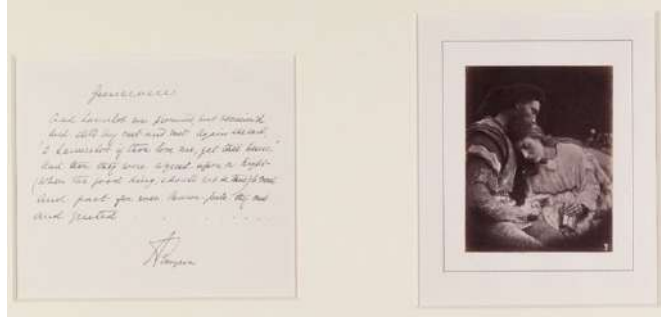 Guinevere
And Lancelot ever promised but remain'd
And still they met and met. Again she said,
"O Lancelot if thou love me, get thee hence."
And then they were agreed upon a night
(When the good King should not be there) to meet
And part for ever. Passion-pale they met
and greeted
A Tennyson